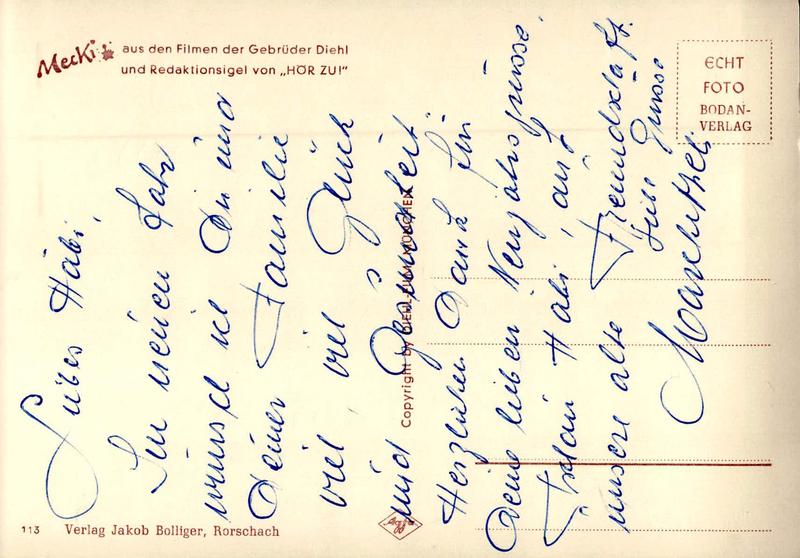 Mecki aus den Filmen der Gebrüder Diehl
und Redaktionsigel von „HÖR ZU!"
ECHT
FOTO
BODAN-
VERLAG
Liebes Häbi,
Im neuen Jahr
wünsch ich Dir und
Deiner Familie
viel, viel Glück
und Gesundheit
Herzlichen Dank für
Deine lieben Neujahrsgrüsse.
Häbi, auf
unsere alte Freundschaft.
Liebe Grüsse
Copyright by DIEHL-FILM MÜNCHEN
Agfa
113 Verlag Jakob Bolliger, Rorschach